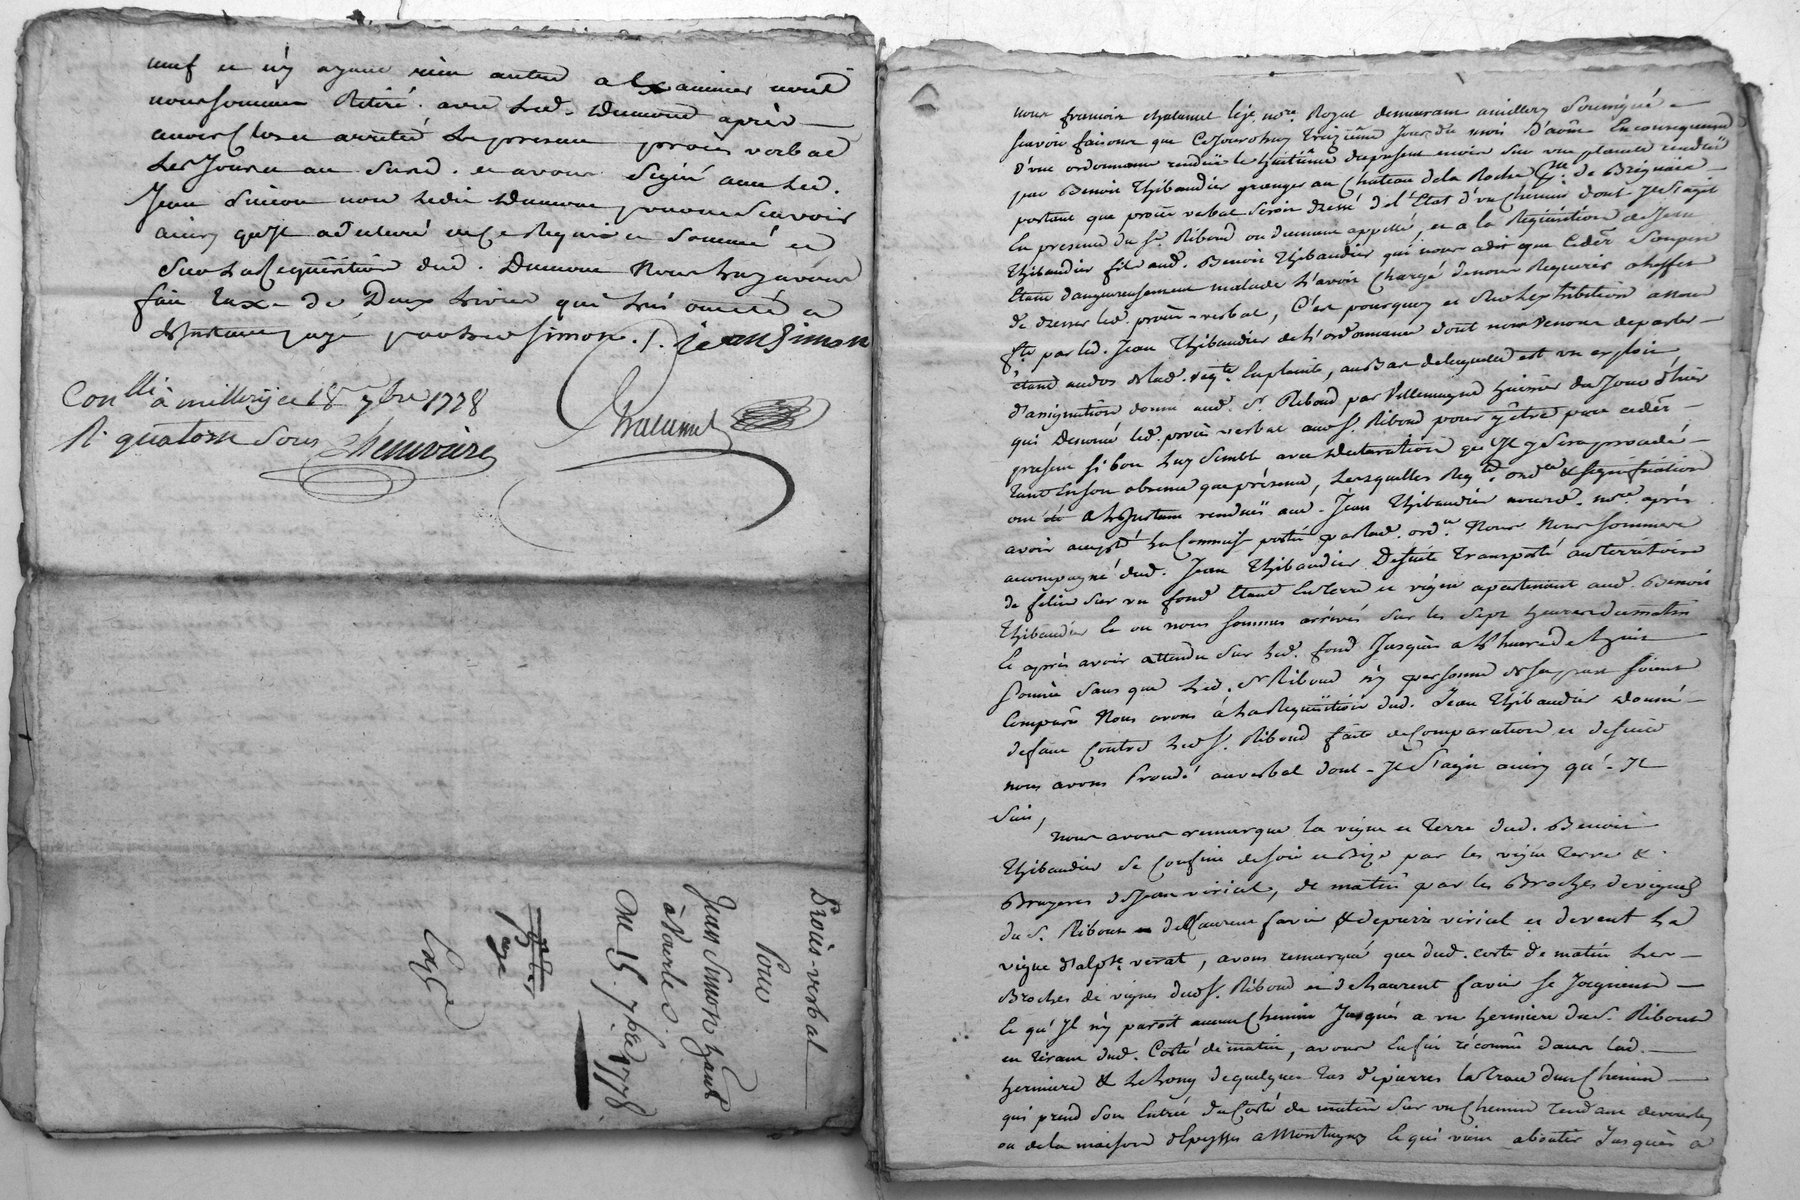 neuf et n'y ayant rien autre a Examiner nous
nous sommes Retiré avec led. Dumont après
avoir Clos et arretté Le present procès verbal
Les Jour et an susd. et avons Signé avec led.
Jean Simon non ledit Dumont pour ne Scavoir
ainsy qu'Il a declaré de ce Requis et Sommé et
Sur La Requisition dud. Dumont Nous luy avons
fait taxe de Deux Livres qui luy ont été a
L'Instant payé par led. Simon ./. jean Simon
Conllé à millery ce 18e 7bre 1778
R. quatorze Sous
Procès-verbal
Pour
Jean Simon hant
à Vourles
Du 15. 7bre 1778
payé
Expé
nous françois lejé nore. Royal demeurant a millery Soussigné
scavoir faisons que Cejourdhuy treizième jour du mois D'août En consequence
d'une ordonnance rendüe le huitième du present mois Sur une plainte rendüe
par Benoit Thibaudier granger au Château de la Roche de Brignais
portant que procès verbal seroit dressé de l'Etat d'un Chemin dont Il S'agit
En presence du Sr. Riboud ou duement appellé, et a la Requisition de Jean
Thibaudier fils aud. Benoit Thibaudier qui nous a dit que
Etant dangereusement malade L'avoir Chargé de nous Requerir a l'effet
de dresser led. procès-verbal, C'est pourquoy et Sur L'exhibition a nous
fte par led. Jean Thibaudier de l'ordonnance dont nous venons de parler
étant au dos de lad. reqte. En plainte, au Bas de laquelle est un exploit
d'assignation donné aud. Sr. Riboud par Villemagne huissier du Jour d'hier
qui Denoncé led. procès verbal aud S. Riboud pour y être
present si bon luy Semble avec declaration qu'Il y Sera procedé
tant En son absence que presence, Lesquelles Reqte. ordce & signification
ont été a L'Instant rendües aud. Jean Thibaudier nousd. nore. après
avoir accepté La Commission portée par lad. ordce. Nous Nous sommes
accompagné dud. Jean Thibaudier De suite transporté au territoire
de felin sur un fond Etant En terre et vigne apartenant aud. Benoit
Thibaudier le ou nous sommes arrivés sur les sept heures du matin
Et après avoir attendu sur led. fond Jusques a L'heure de huit
Sonnée sans que led. Sr Riboud n'y personne de sa part soient
Comparu Nous avons à La Requisition dud. Jean Thibaudier Donné
defaut Contre led S. Riboud faute de Comparation et de suite
nous avons Procedé au verbal dont Il S'agit ainsy qu'Il
Suit,
Nous avons remarqué la vigne et terre dud. Benoit
Thibaudier Se Confine de soir et Bize par les vigne terre &
Bruyeres de Jean virieat, de matin par les Broches de vignes
du S. Riboud de Laurent favier & de pierre viricat et de vent La
vigne d'alpte. verat, avons remarqué que dud. Coste de matin Les
Broches de vignes dud S. Riboud et de Laurent favier se Joignent
Et qu'Il n'y paroit aucun Chemin Jusqués a un hermiere du S. Riboud
en tirant dud. Costé de matin, avons Enfin reconnu dans lad.
hermiere & Le Long de quelques tas de pierres la trace d'un Chemin
qui prend Son Entrée du Costé de matin Sur un Chemin tendant de vourles
ou de la maison d'Epeysses a Montagny Et qui vient aboutir Jusques a